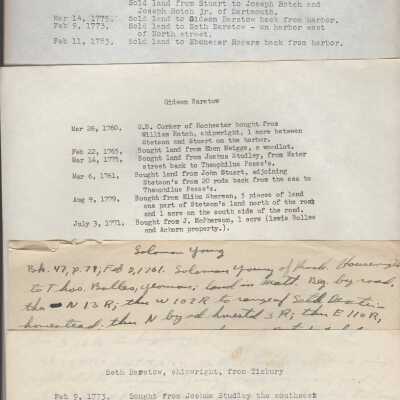 Sold land from Stuart to Joseph Rotch and
Joseph Rotch jr. of Dartmouth.
Mar 14, 1775. Sold land to Gideon Barstow back from harbor.
Feb 9, 1773. Sold land to Seth Barstow - on harbor east
of North street.
Feb 11, 1783. Sold land to Ebenezer Rogers back from harbor.
Gideon Barstow
Mar 26, 1760. S.E. Corner of Rochester bought from
William Hatch, shipwright, 1 acre between
Stetson and Stuart on the harbor.
Feb 22, 1765. Bought land from Eben Meiggs, a woodlot.
Mar 14, 1775. Bought land from Joshua Studley, from Water
street back to Theophilus Pease's.
Mar 6, 1761. Bought land from John Stuart, adjoining
Stetson's from 20 rods back from the sea to
Theophilus Pease's.
Aug 9, 1779. Bought from Elihu Sherman, 3 pieces of land
one part of Stetson's land north of the road
and 1 acre on the south side of the road.
July 3, 1771. Bought from J. McPherson, 1 acre (Lewis Bolles
and Ackorn property.).
Solomon Young
Bk. 47, p. 78; Feb 2, 1761. Solomon Young of Roch. Housewright
to T. hos. Bolles, yeoman, land in Matt. Beg. by road,
the N 13 R; thn W 102 R to range of Seth
homestead, thn N by sd homestd 3 R; thn E 110 R,
Seth Barstow, shipwright, from Tisbury
Feb 9, 1773. Bought from Joshua Studley the southwest